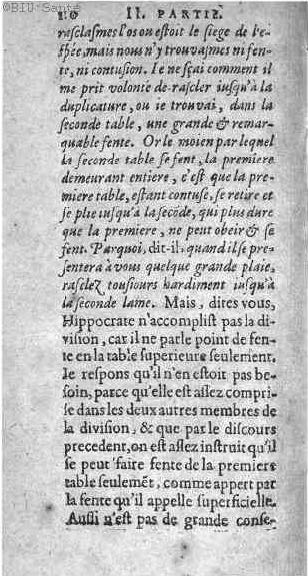 ©BIU Santé
II. PARTIE.
rasclasmes l'os ou estoit le siege de l'es-
pée, mais nous n'y trouvasmes ni fen-
te, ni contusion. Ie ne sçai comment il
me prit volonte de rascler iusqu'à la
duplicature, ou ie trouvai, dans la
seconde table, une grande & remar-
quable fente. Or le moien par lequel
la seconde table se fent, la premiere
demeurant entiere, c'est que la pre-
miere table, estant contuse, se retire et
se plie iusqu'à la secõde, qui plus dure
que la premiere, ne peut obeir & se
fent. Parquoi, dit-il, quand il se pre-
sentera à vous quelque grande plaie,
rasclez tousiours hardiment iusqu'à
la seconde lame. Mais, dites vous,
Hippocrate n'accomplist pas la di-
vision, car il ne parle point de fen-
te en la table superieure seulement.
Ie respons qu'il n'en estoit pas be-
soin, parce qu'elle est assez compri-
se dans les deux autres membres de
la division, & que par le discours
precedent, on est assez instruit qu'il
se peut faire fente de la premiere
table seulemẽt, comme appert par
la fente qu'il appelle superficielle.
Aussi n'est pas de grande conse-